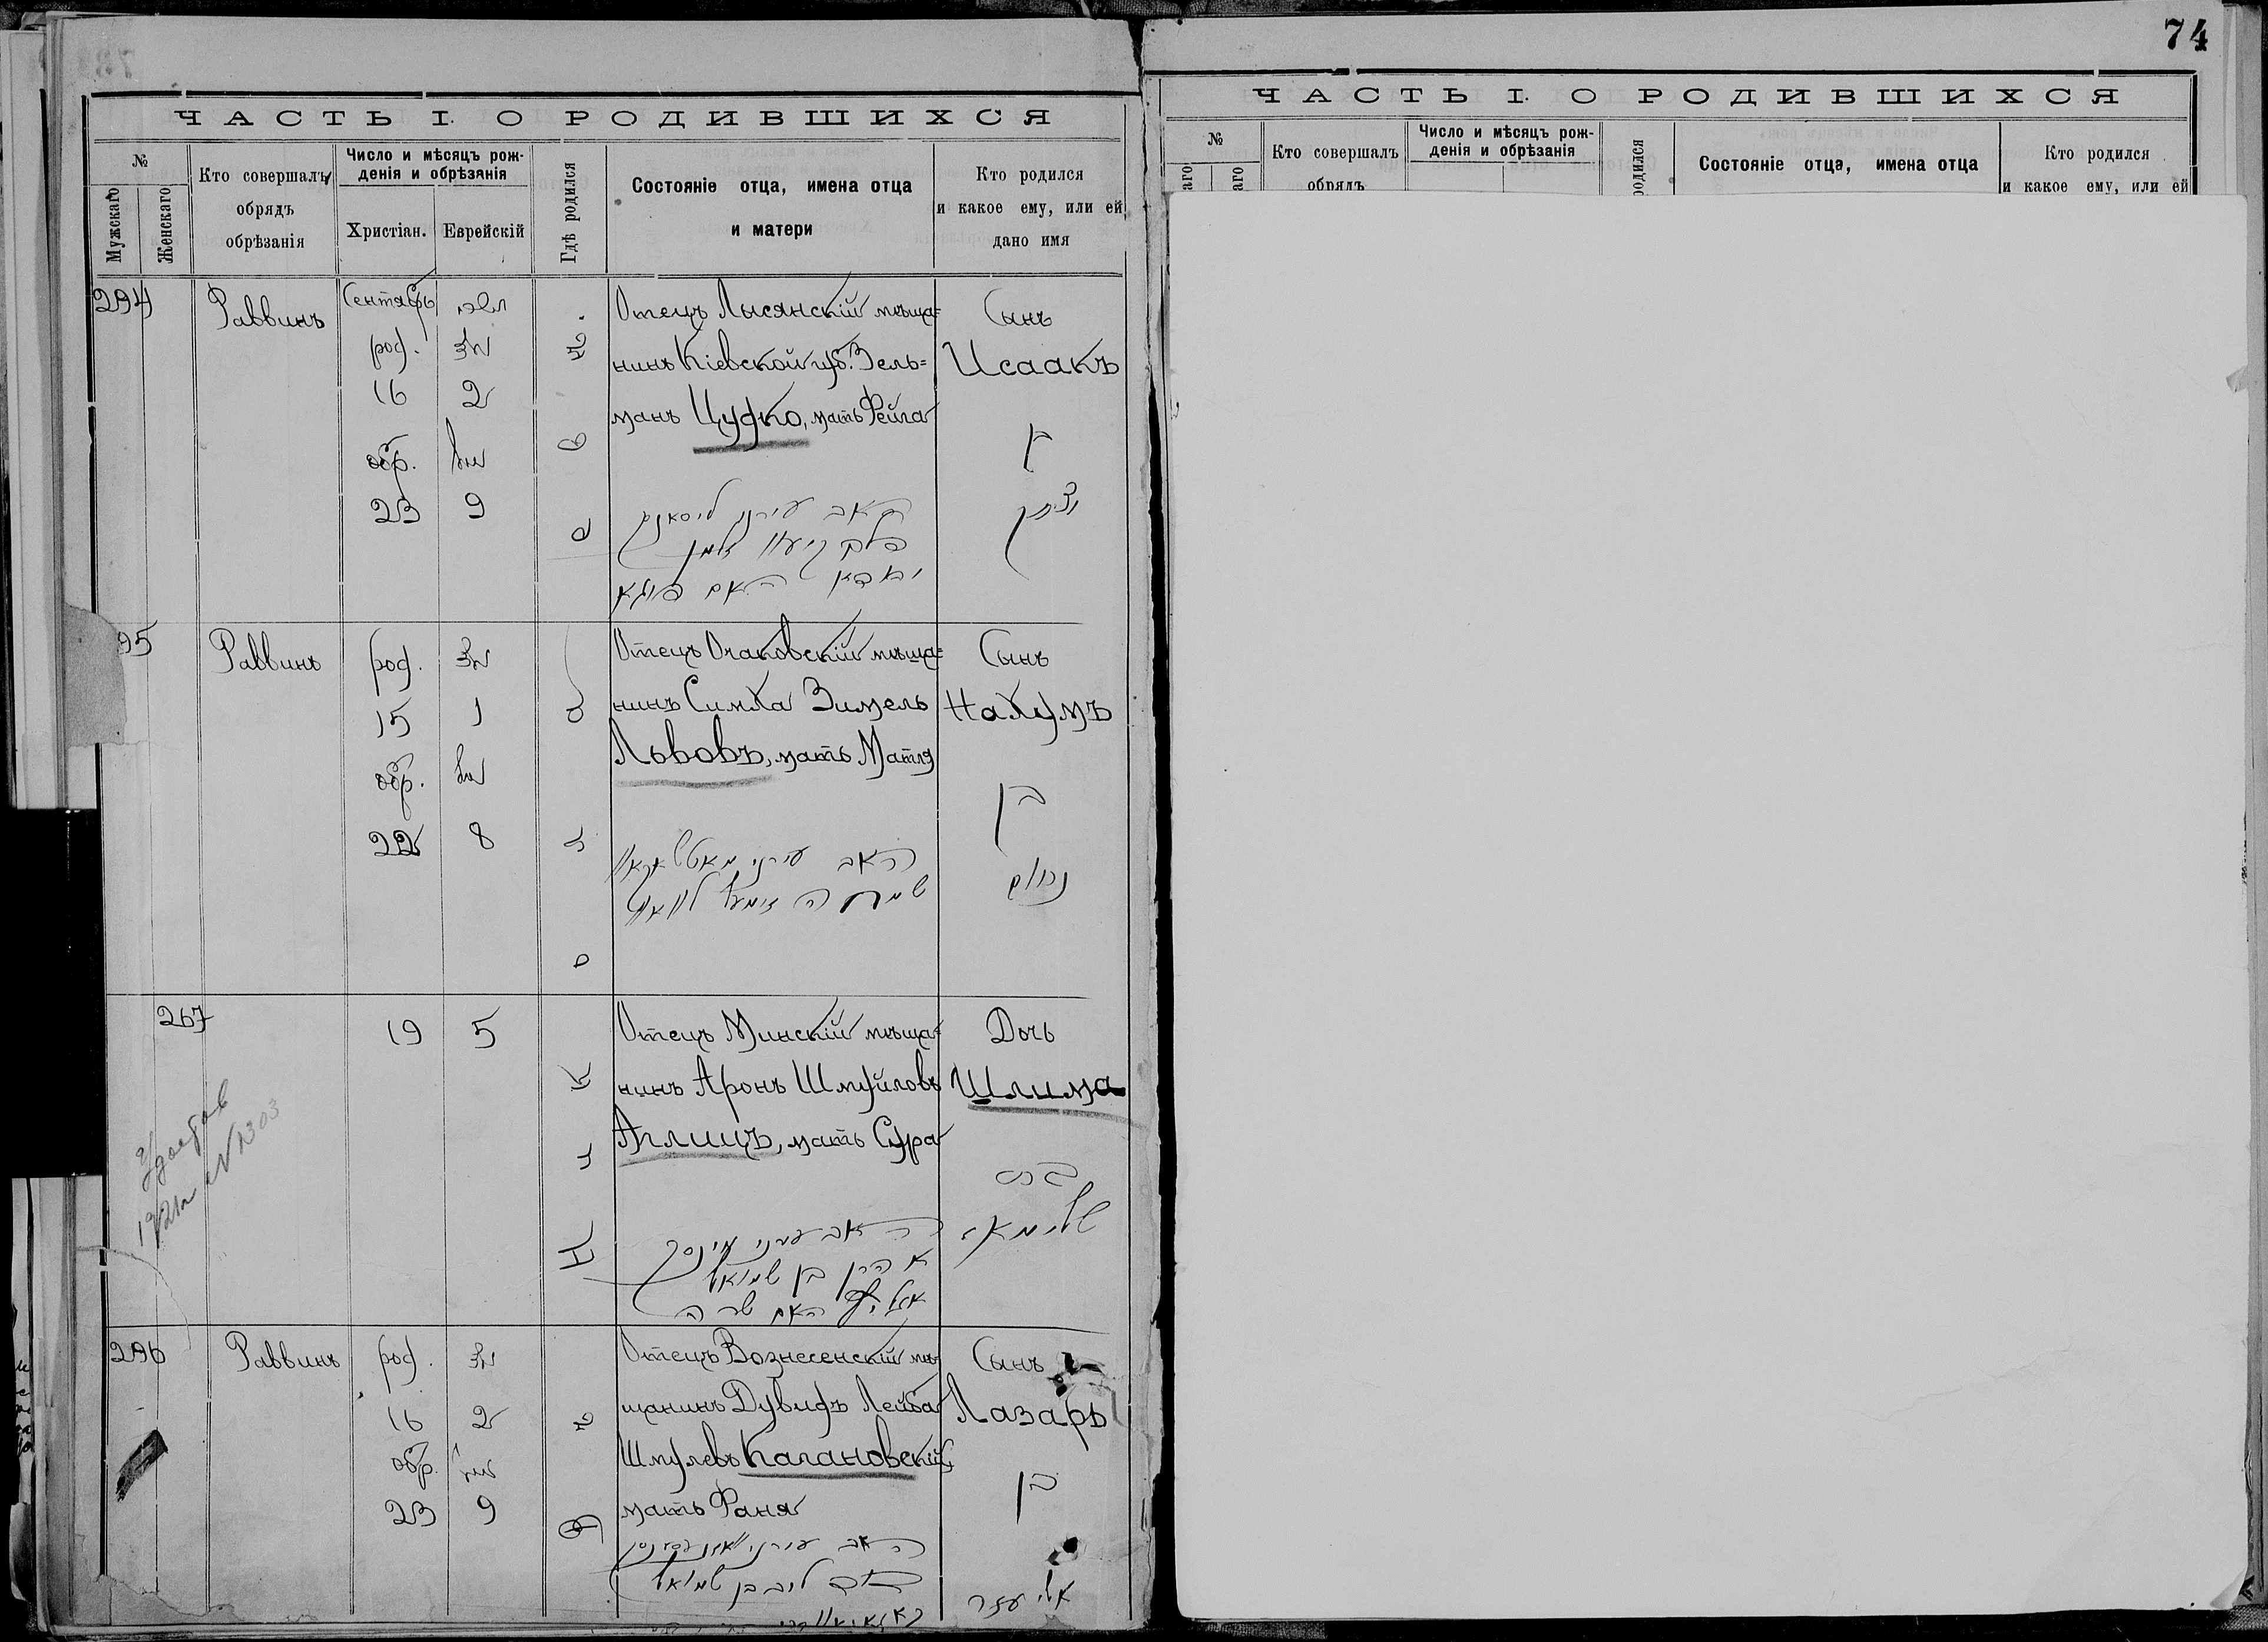 74
ЧАСТЬ I. О РОДИВШИХСЯ
№
Мужскаго
Женскаго
Кто совершалъ
обрядъ
обрѣзанія
Число и мѣсяцъ рож-
денія и обрѣзанія
Христіан.
Еврейскій
Гдѣ родился
Состояніе отца, имена отца
и матери
Кто родился
и какое ему, или ей
дано имя
294
Раввинъ
Сентябрь
род.
16
2
обр.
23
9
Отецъ Лысянскій мѣща=
нинъ Кіевской губ. Зель=
манъ Цудко, мать Фейга
האב עירני
האם פייגא
Сынъ
Исаакъ
בן
יצחק
95
Раввинъ
род.
15
1
обр.
22
8
Отецъ Очаковскій мѣща=
нинъ Симха Зимель
Львовъ, мать Матля
האב עירני
שמחה זימעל
Сынъ
Нахумъ
בן
נחום
267
19
5
Отецъ Минскій мѣща=
нинъ Аронъ Шмуйловъ
Аглицъ, мать Сура
האב עירני מינסק
אהרן בן שמואל
האם שרה
Дочь
Шлима
בת
שלימא
1921 г. № 1303
296
Раввинъ
род.
16
2
обр.
23
9
Отецъ Вознесенскій мѣ-
щанинъ Дувидъ Лейба
Шмулевъ Кагановскій,
мать Фаня
האב עירני
דוד ליב בן שמואל
Сынъ
Лазарь
בן
אליעזר
ЧАСТЬ I. О РОДИВШИХСЯ
№
аго
аго
Кто совершалъ
обрядъ
Число и мѣсяцъ рож-
денія и обрѣзанія
родился
Состояніе отца, имена отца
Кто родился
и какое ему, или ей